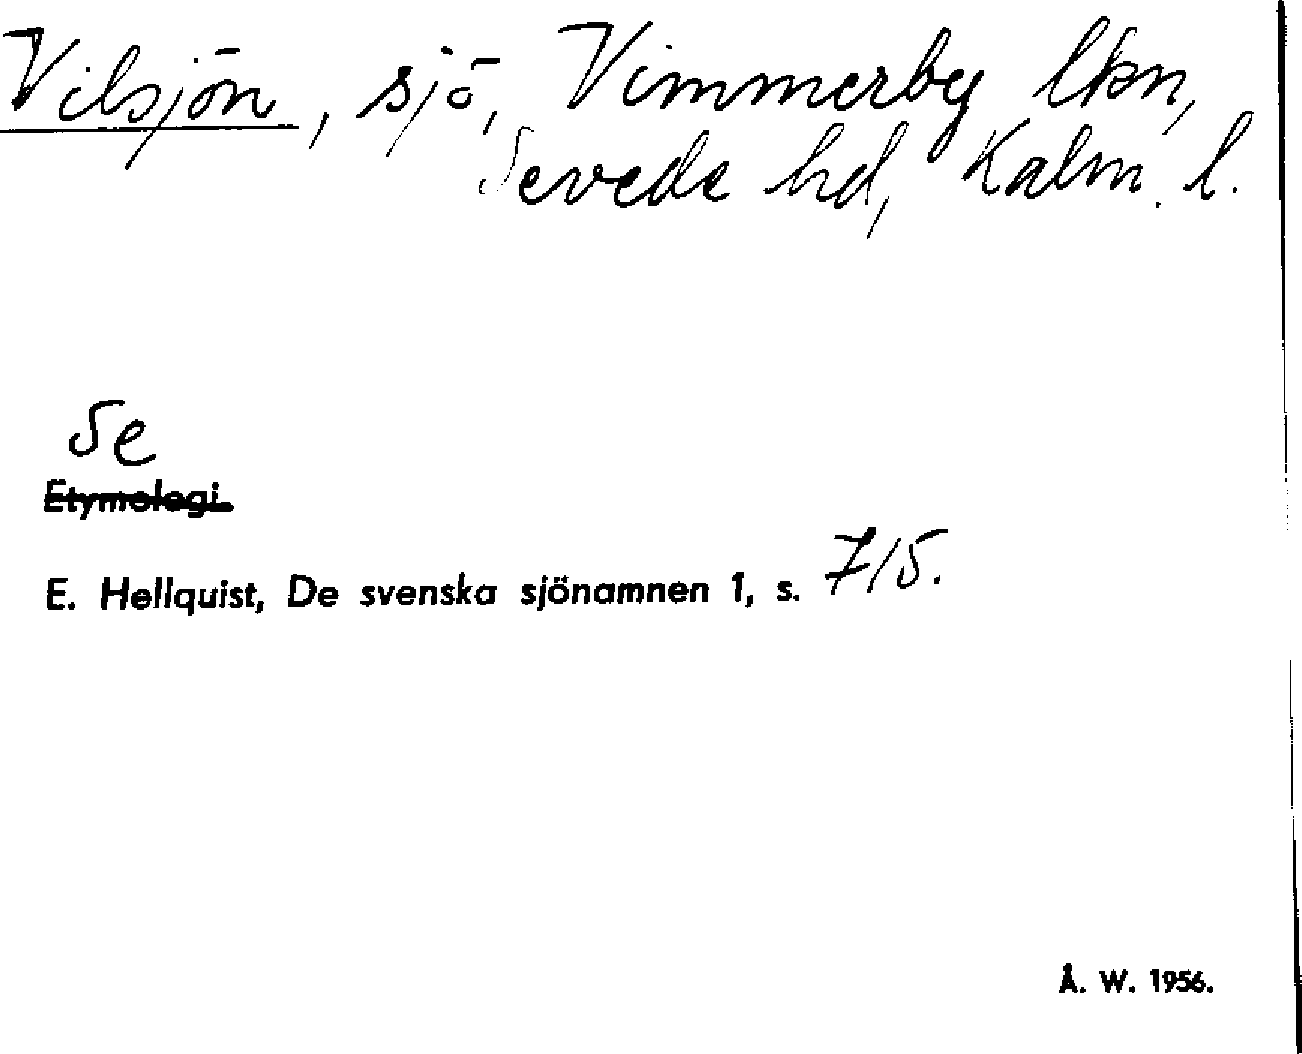 Vilsjön, sjö, Vimmerby lkn,
Sevede hd, Kalm. l.
Se
Etymologi.
E. Hellquist, De svenska sjönamnen 1, s. 715.
Å. W. 1956.